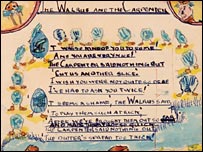 THE WALRUS AND THE CARPENTER
IT WAS SO KIND OF YOU TO COME!
AND YOU ARE VERY NICE!
THE CARPENTER SAID NOTHING BUT
CUT US ANOTHER SLICE.
I WISH YOU WERE NOT QUITE SO DEAF
I'VE HAD TO ASK YOU TWICE!
IT SEEMS A SHAME, THE WALRUS SAID
TO PLAY THEM SUCH A TRICK,
THE CARPENTER SAID NOTHING BUT
THE BUTTER'S SPREAD TOO THICK!